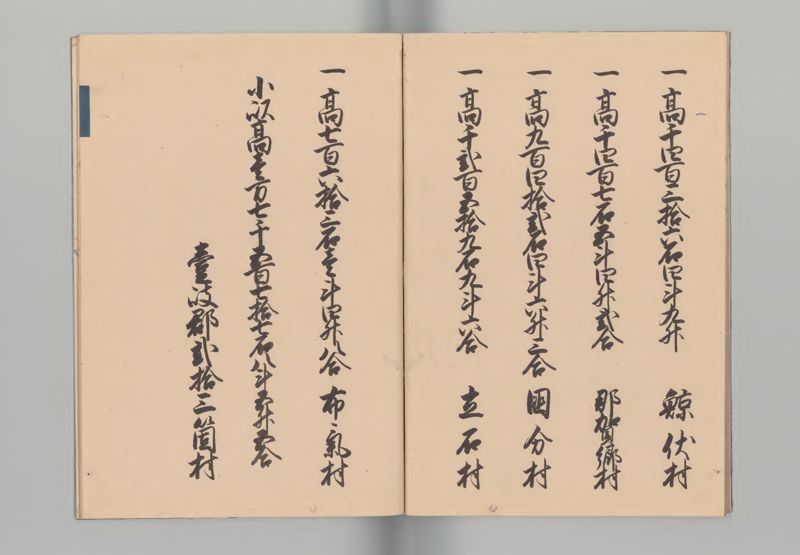 一高千四百三拾六石四斗九升 鯨伏村
一高千四百七石五斗四升弐合 那賀郷村
一高九百四拾弐石四斗六升三合 国分村
一高千弐百五拾九石九斗六合 立石村
一高七百六拾三石壱斗四升八合 布気村
小以高壱万七千五百七拾七石八斗五升五合
壹岐郡弐拾三箇村